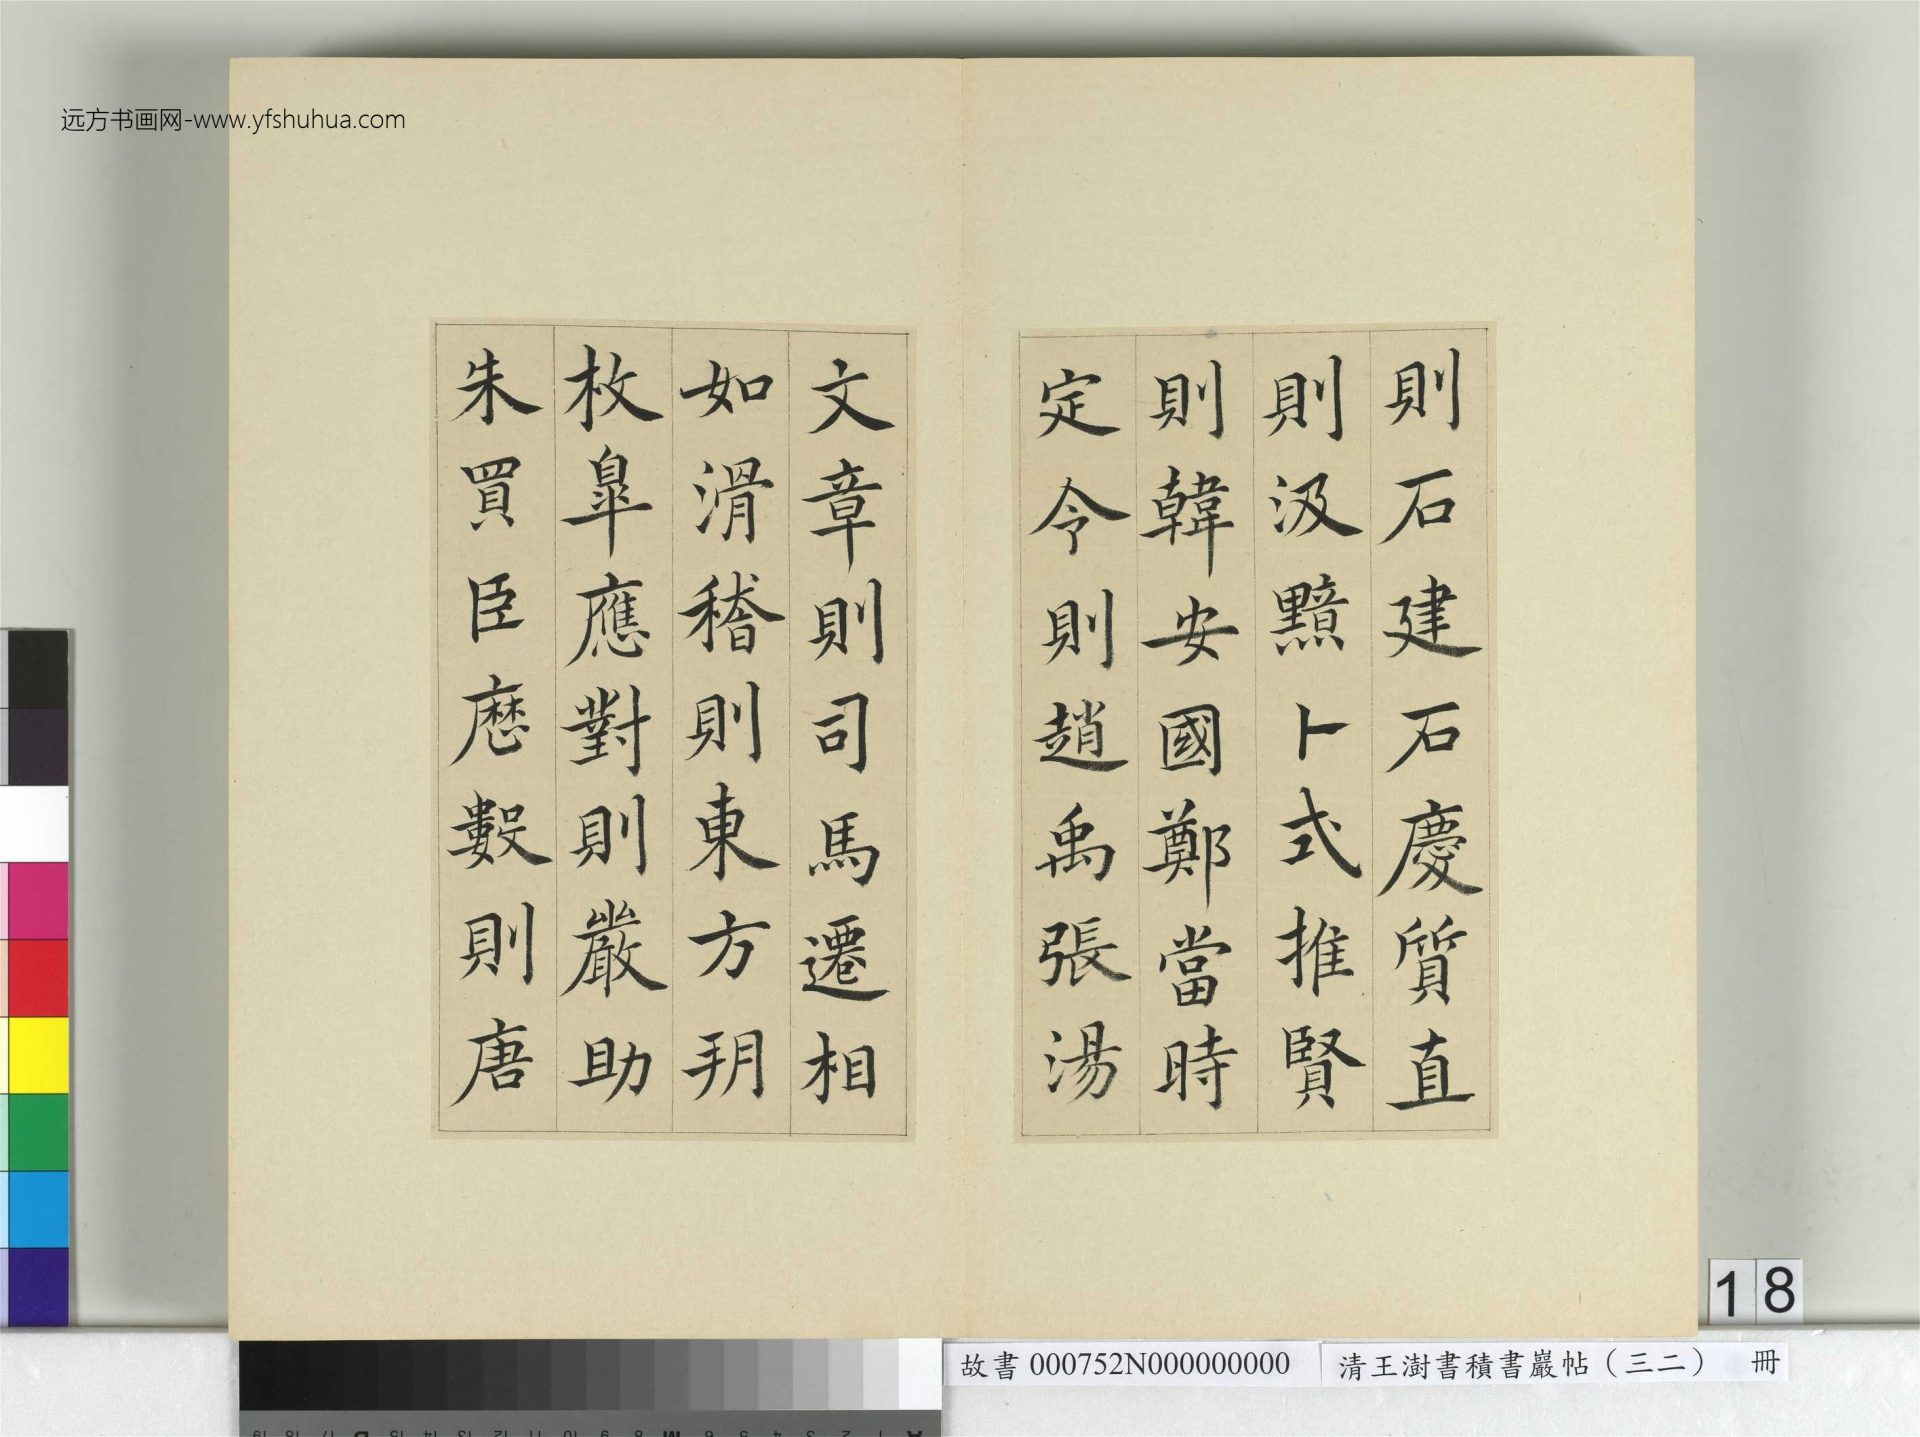 远方书画网-www.yfshuhua.com
則石建石慶質直
則汲黯卜式推賢
則韓安國鄭當時
定令則趙禹張湯
文章則司馬遷相
如滑稽則東方玥
枚皐應對則嚴助
朱買臣厯數則唐
18
故書000752N000000000
清王澍書積書巖帖（三二） 冊